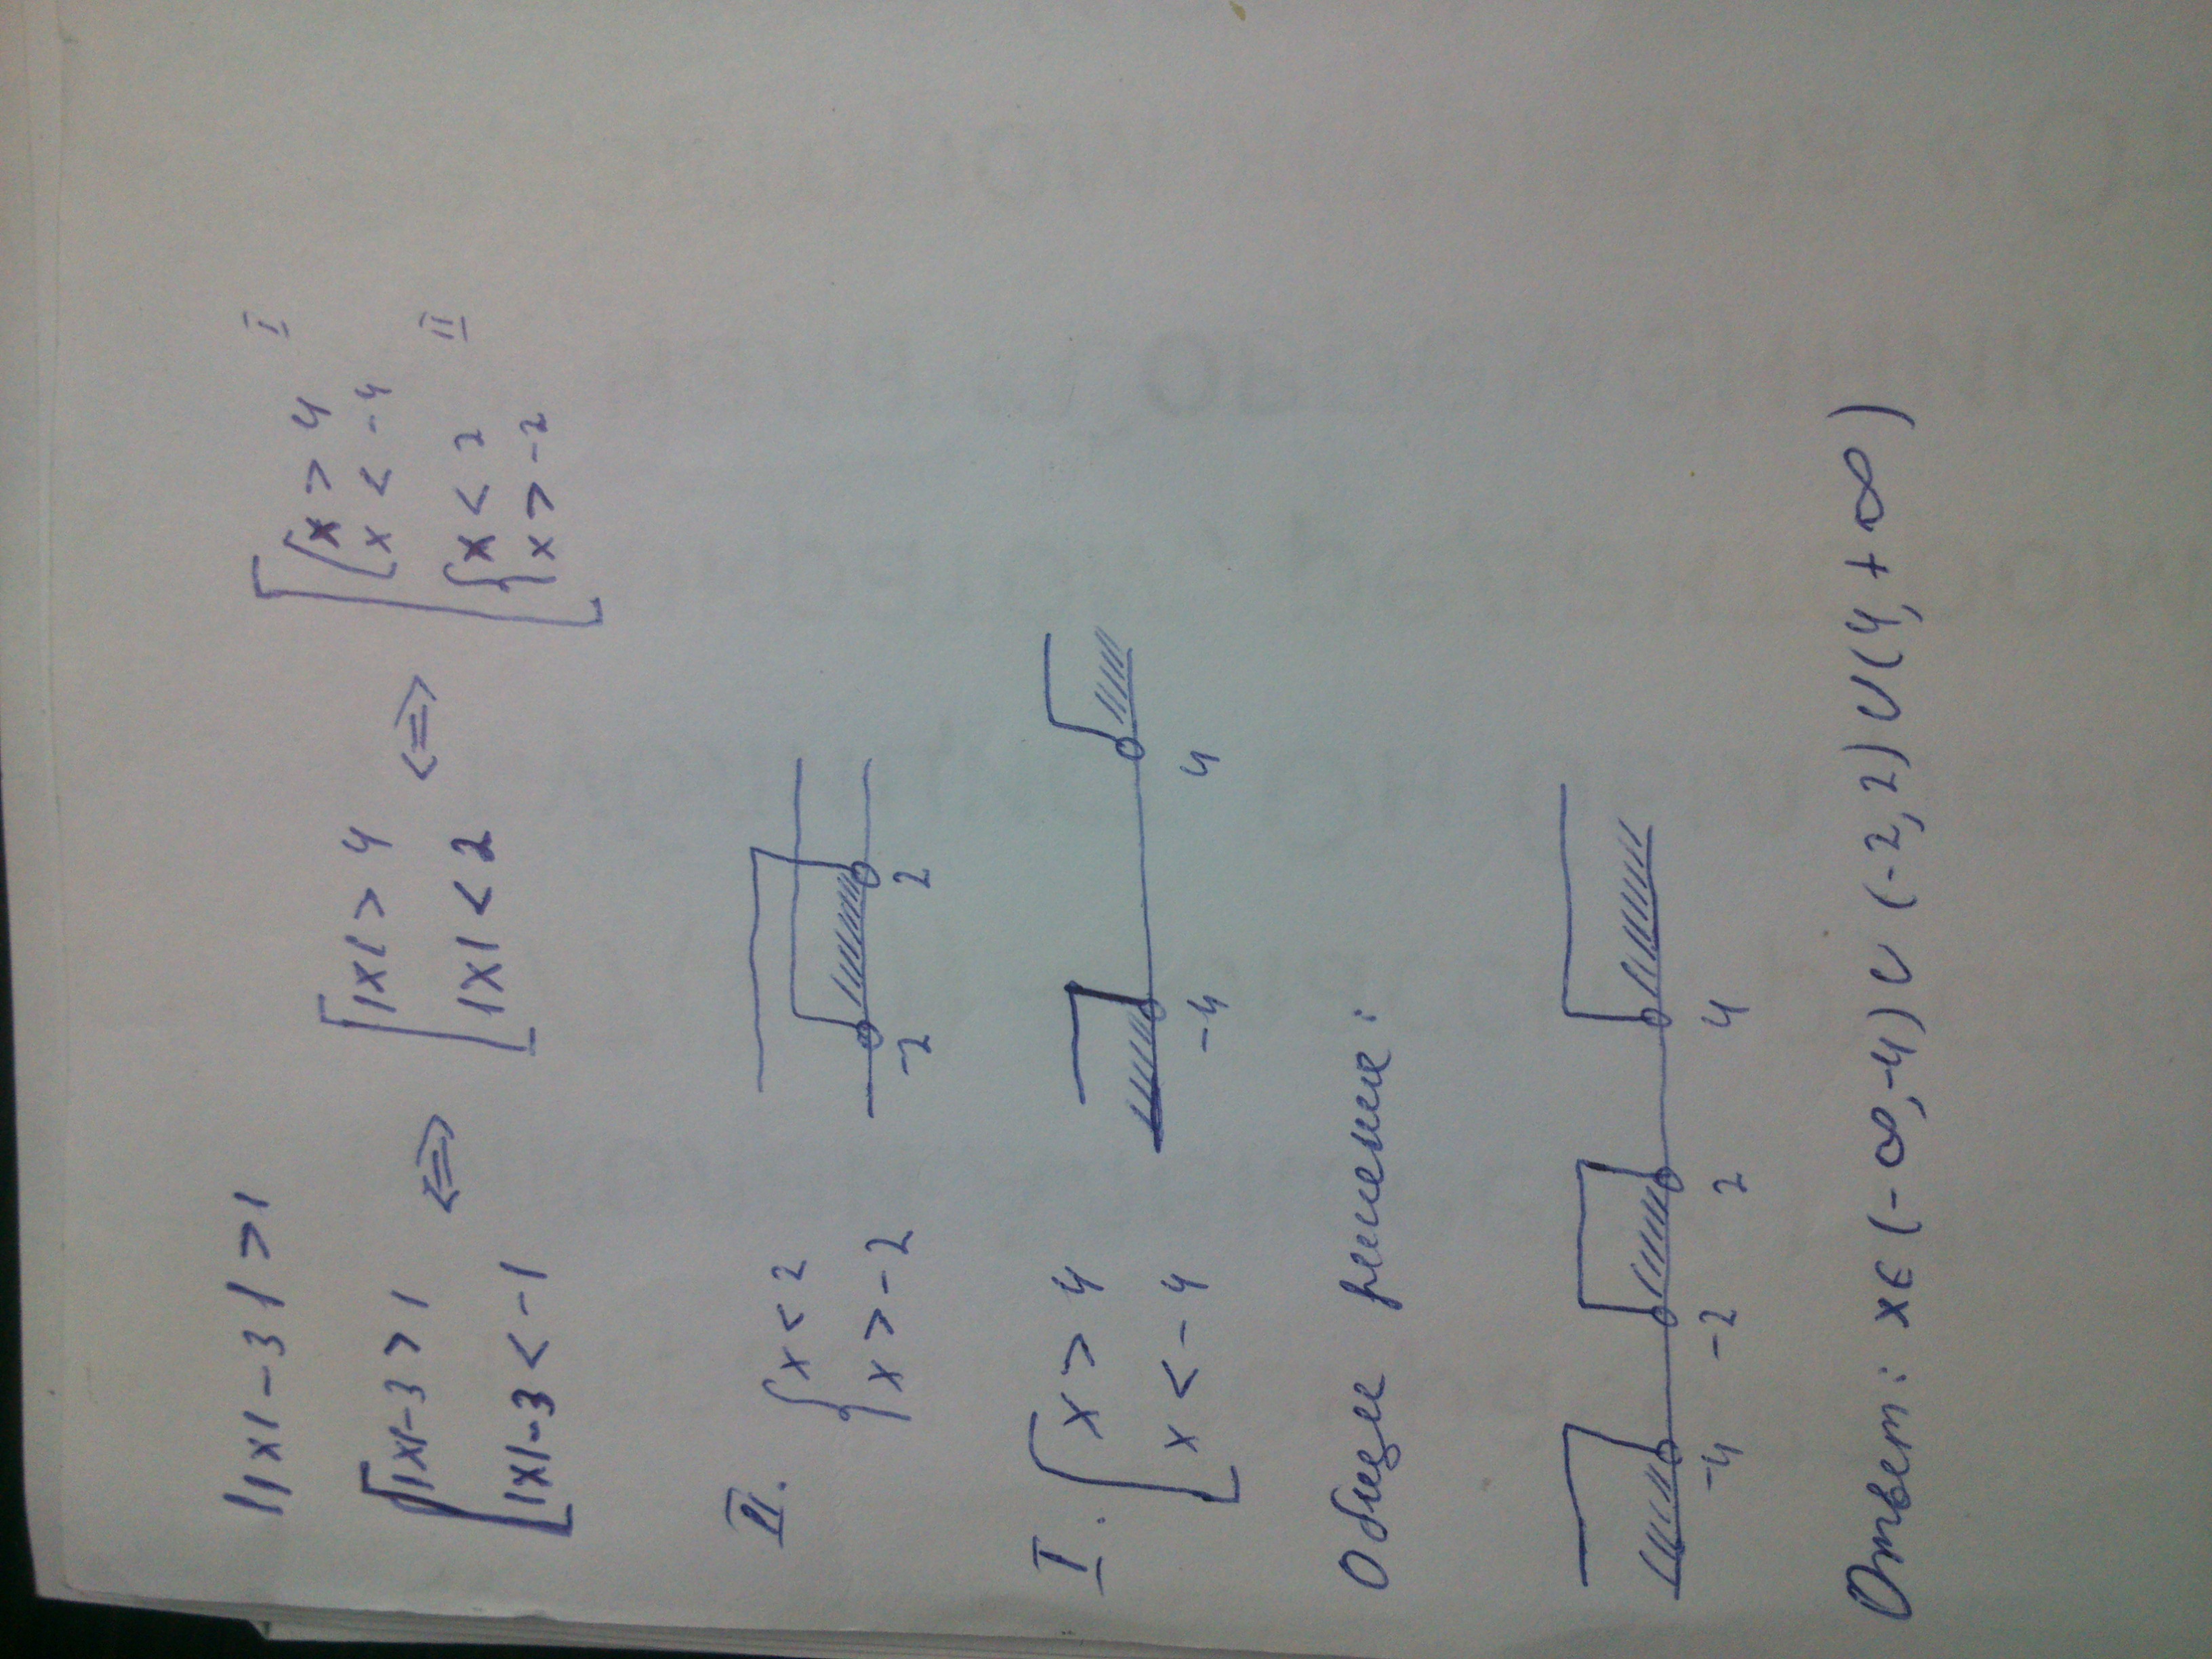 ||x|-3|>1
[|x|-3>1 [|x|-3<-1 <=> [|x|>4 [|x|<2 <=> [[x>4 x<-4 I {x<2 x>-2 II
II. {x<2 x>-2
-2 2
I. [x>4 x<-4
-4 4
Общее решение:
-4 -2 2 4
Ответ: x∈(-∞,-4)∪(-2,2)∪(4,+∞)